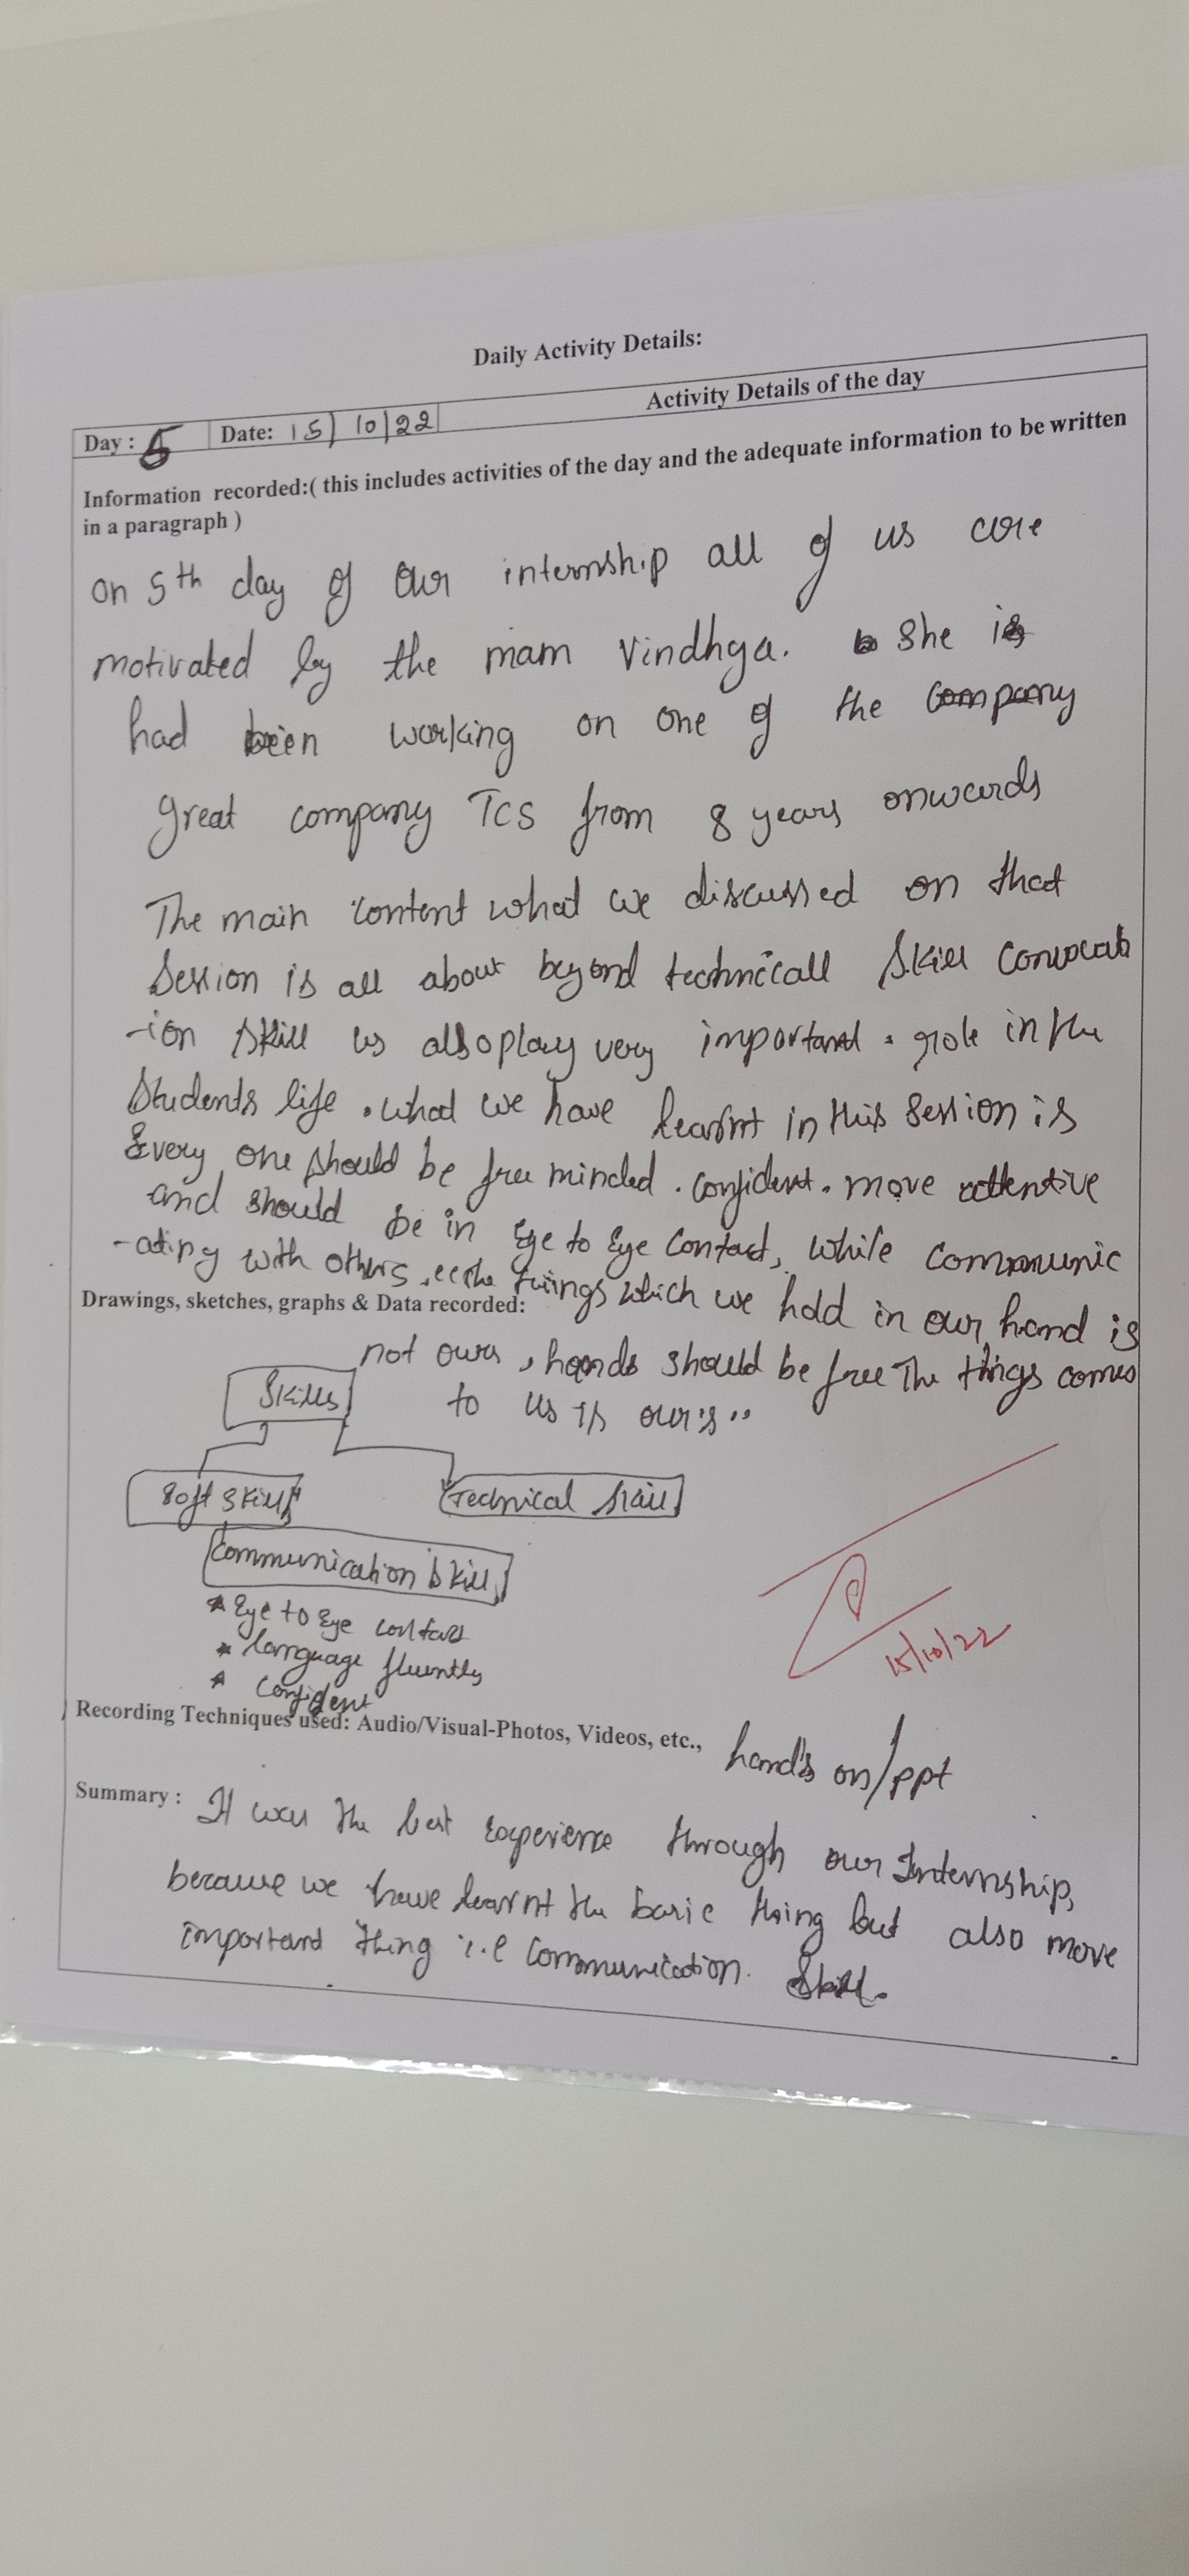 Daily Activity Details:
Day : 5 Date: 15/10/22 Activity Details of the day
Information recorded:( this includes activities of the day and the adequate information to be written
in a paragraph )
on 5th day of our internship all of us are
motivated by the mam Vindhya. She is
had been working on one of the company
great company TCS from 8 years onwards
The main content what we discussed on that
Session is all about beyond technicall skill
-ion skill is also play very important role in the
Students life. what we have learnt in this session is
Every one should be free minded. confident. more attentive
and should be in Eye to Eye contact, while communic
-ating with others, the things which we hold in our hand is
Drawings, sketches, graphs & Data recorded:
not ours, hands should be free The things comes
to us is our's..
Skills
Soft skills Technical skill
Communication skill
* Eye to Eye contact
* language fluently
* Confident
15/10/22
Recording Techniques used: Audio/Visual-Photos, Videos, etc., hand's on/ppt
Summary : It was the best experience through our Internship,
because we have learnt the basic thing but also more
important thing i.e communication. Skill.